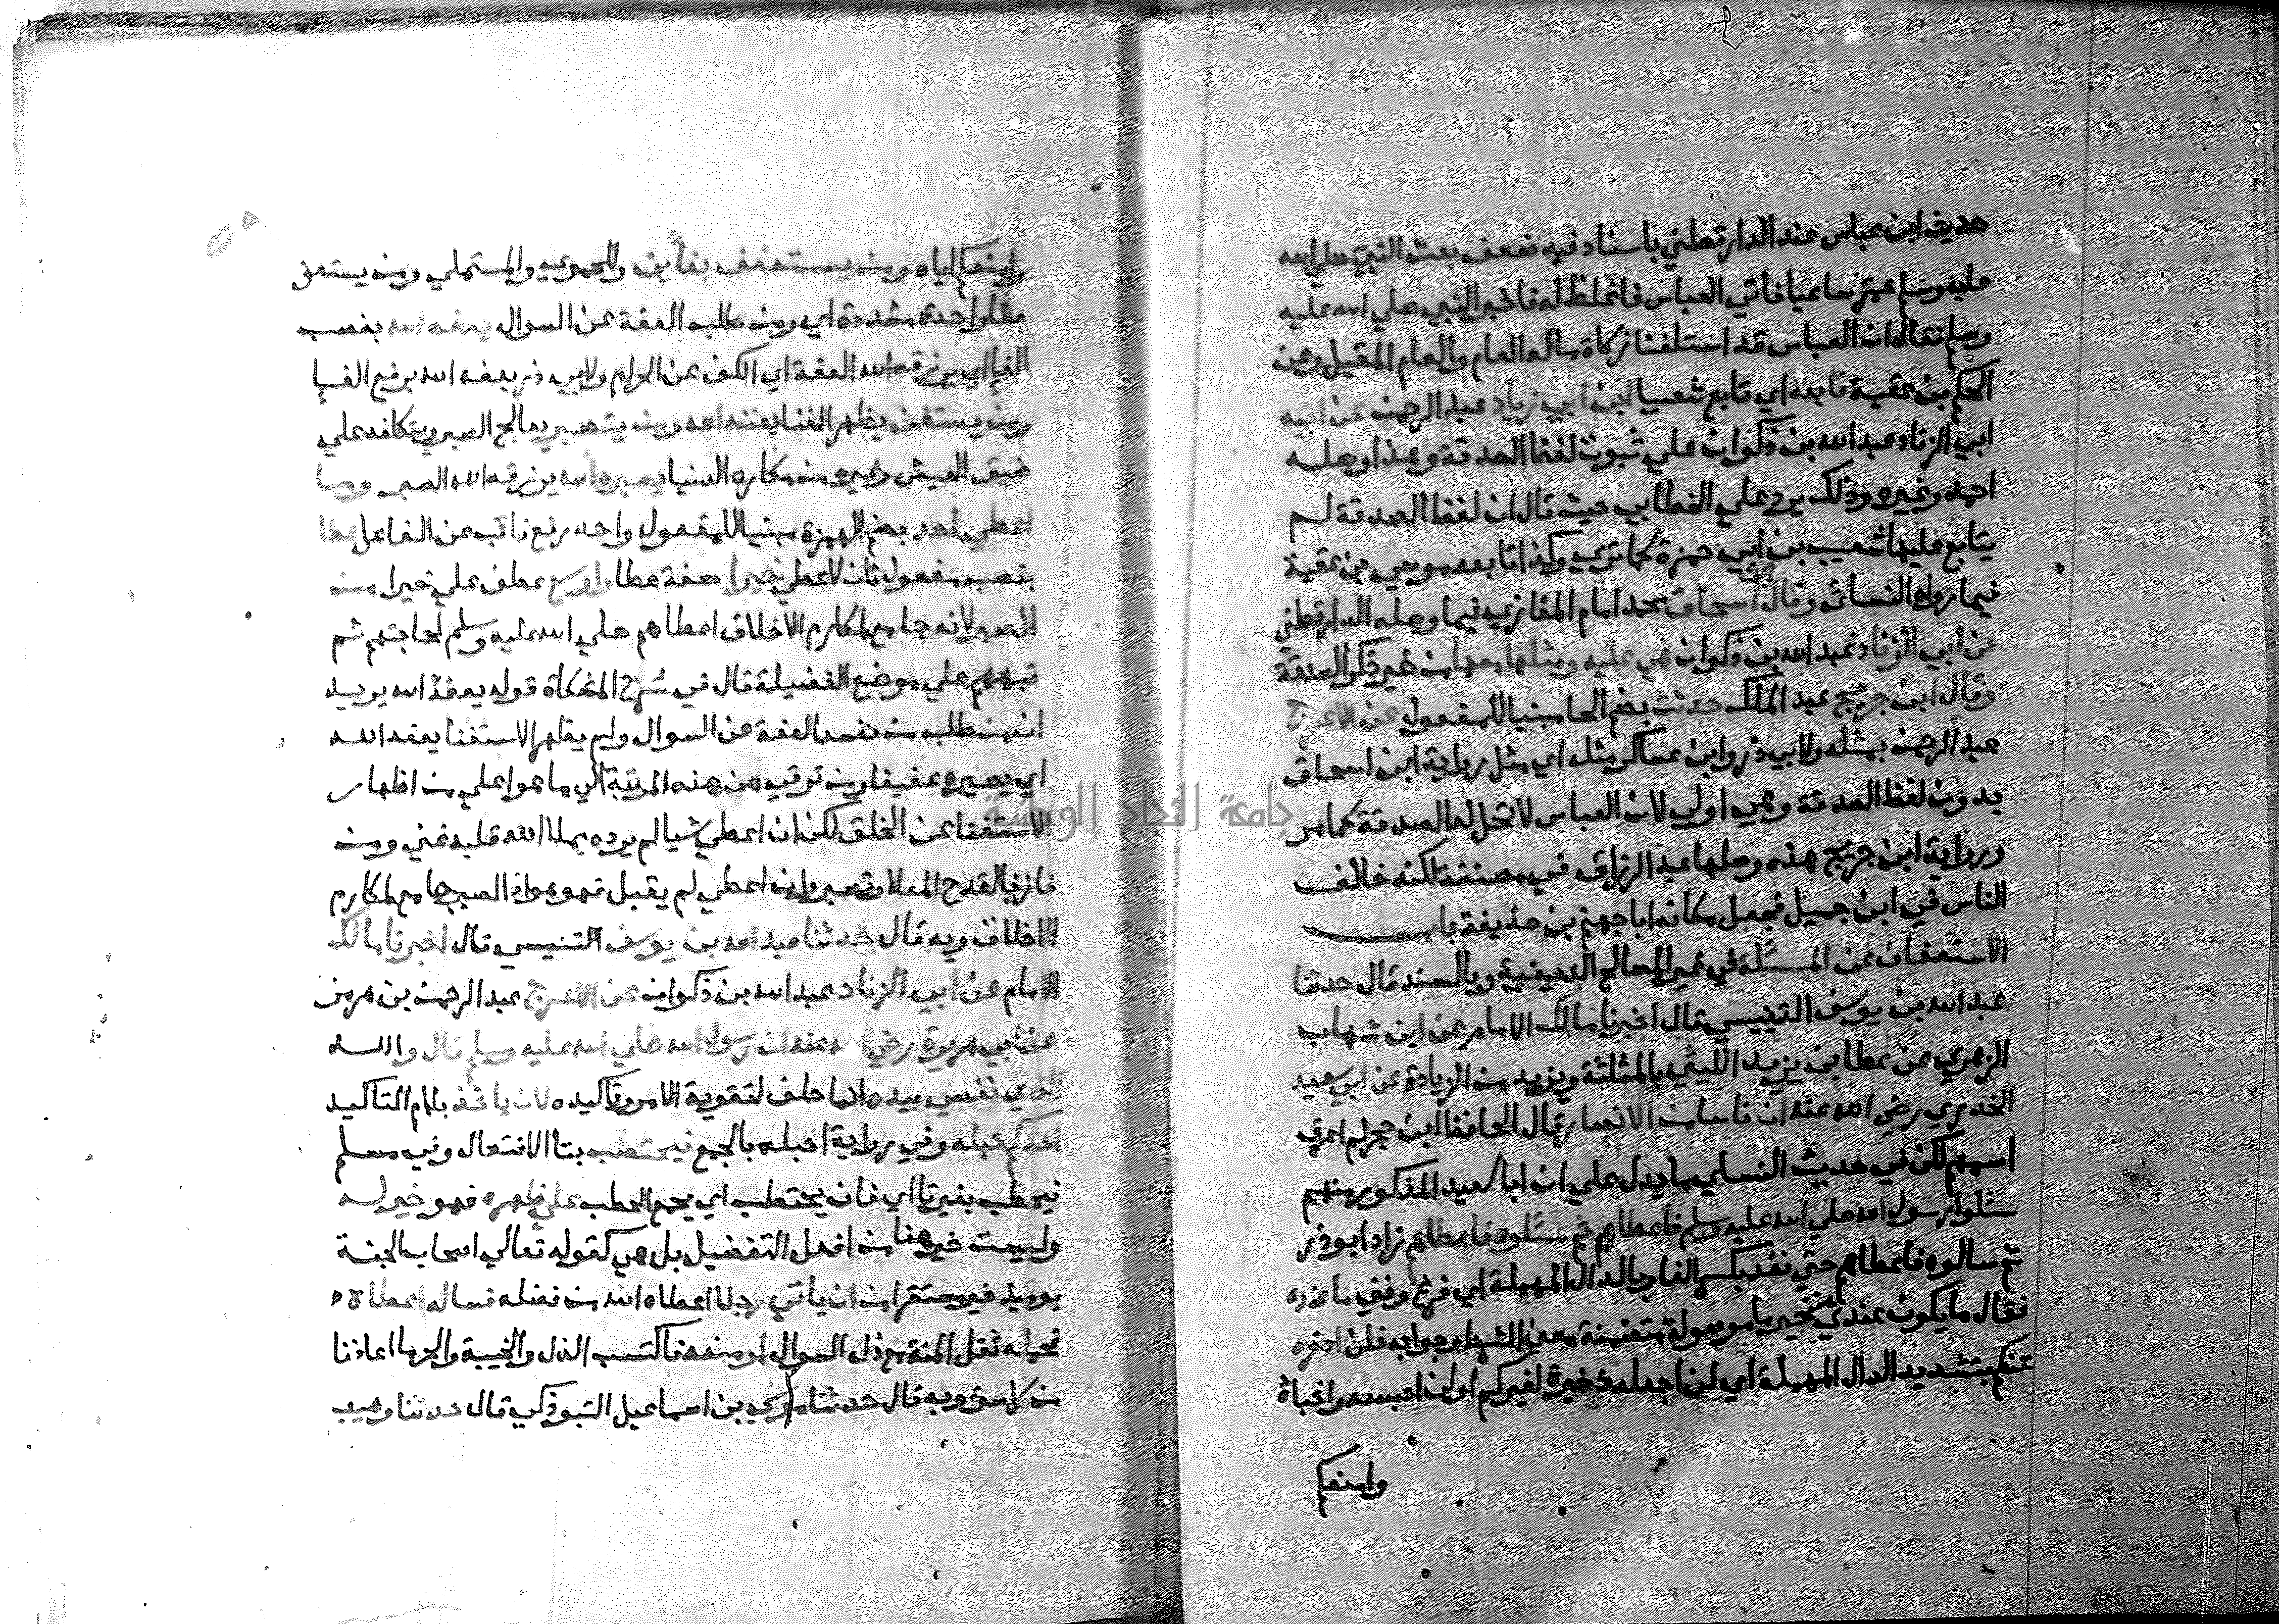 حديث ابن عباس عند الدارقطني باسناد فيه ضعف بعث النبي صلي الله
عليه وسلم عمر ساعيا فاتي العباس فاغلظ له فاخبر النبي صلي الله عليه
وسلم فقال ان العباس قد استلفنا زكاة ماله العام والعام المقبل وعن
الحكم بن عقبة تابعه اي تابع شعيبا ابن ابي زياد عبد الرحمن عن ابيه
ابي الزناد عبد الله بن ذكوان علي ثبوت لفظ الصدقة وهذا وصله
احمد وغيره وذلك يرد علي الخطابي حيث قال ان لفظ الصدقة لم
يتابع عليها شعيب بن ابي حمزة كما تري وكذا تابعه موسي بن عقبة
فيما رواه النسائي وقال ابن اسحاق محمد امام المغازي فيما وصله الدارقطني
عن ابي الزناد عبد الله بن ذكوان هي عليه ومثلها معها من غير ذكر الصدقة
وقال ابن جريج عبد الملك حدثت بضم الحا مبنيا للمفعول عن الاعرج
عبد الرحمن بمثله ولابي ذر وابن عساكر مثله اي مثل رواية ابن اسحاق
بدون لفظ الصدقة وهي اولي لان العباس لا تحل له الصدقة كما مر
ورواية ابن جريج هذه وصلها عبد الرزاق في مصنفه لكنه خالف
الناس في ابن جميل فجعل مكانه ابا جهم بن حذيفة باب
الاستعفاف عن المسئلة في غير المصالح الدينية وبالسند قال حدثنا
عبد الله بن يوسف التنيسي قال اخبرنا مالك الامام عن ابن شهاب
الزهري عن عطا بن يزيد الليثي بالمثلثة ويزيد من الزيادة عن ابي سعيد
الخدري رضي الله عنه ان ناسا من الانصار قال الحافظ ابن حجر لم اعرف
اسمهم لكن في حديث النسائي ما يدل علي ان ابا سعيد المذكور منهم
سئلوا رسول الله صلي الله عليه وسلم فاعطاهم ثم سئلوه فاعطاهم زاد ابو ذر
ثم سالوه فاعطاهم حتي نفد بكسر الفا وبالدال المهملة اي فرغ وفني ما عنده
فقال ما يكون عندي من خير ما موصولة متضمنة معني الشرط وجوابه فلن ادخره
عنكم بتشديد الدال المهملة اي لن اجعله ذخيرة لغيركم او لن احبسه واخباه
وامنعكم
وامنعكم اياه ومن يستعفف بفاين وللحموي والمستملي ومن يستعف
بفا واحدة مشددة اي ومن طلب العفة عن السوال يعفه الله بنصب
الفا اي يرزقه الله العفة اي الكف عن الحرام ولابي ذر يعفه الله برفع الفا
ومن يستغن يظهر الغنا يغنه الله ومن يتصبر يعالج الصبر ويتكلفه علي
ضيق العيش وغيره من مكاره الدنيا يصبره الله يرزقه الله الصبر وما
اعطي احد بضم الهمزة مبنيا للمفعول واحد رفع نائب عن الفاعل عطا
بنصب مفعول ثان لاعطي خيرا صفة عطا واوسع عطف علي خيرا من
الصبر لانه جامع لمكارم الاخلاق اعطاهم صلي الله عليه وسلم لحاجتهم ثم
نبههم علي موضع الفضيلة قال في شرح المشكاة قوله يعفه الله يريد
ان من طلب من نفسه العفة عن السوال ولم يظهر الاستغنا يعفه الله
اي يصيره عفيفا ومن ترقي من هذه المرتبة الي ما هو اعلي من اظهار
الاستغنا عن الخلق لكن ان اعطي شيا لم يرده يملا الله قلبه غني ومن
فاز بالقدح المعلا وتصبر وان اعطي لم يقبل فهو هو اذ الصبر جامع لمكارم
الاخلاق وبه قال حدثنا عبد الله بن يوسف التنيسي قال اخبرنا مالك
الامام عن ابي الزناد عبد الله بن ذكوان عن الاعرج عبد الرحمن بن هرمز
عن ابي هريرة رضي الله عنه ان رسول الله صلي الله عليه وسلم قال والله
الذي نفسي بيده انما حلف لتقوية الامر وتاكيده لان ياخذ بلام التاكيد
احدكم حبله وفي رواية احبله بالجمع فيحتطب بتا الافتعال وفي مسلم
فيحطب بغير تا اي فان يحتطب اي يجمع الحطب علي ظهره فهو خير له
وليست خير هنا من افعل التفضيل بل هي كقوله تعالي اصحاب الجنة
يوميذ خير مستقرا من ان ياتي رجلا اعطاه الله من فضله فساله اعطاه
فحمله ثقل المنة مع ذل السوال او منعه فاكتسب الذل والخيبة والحرمان اعاذنا
من كل سوء وبه قال حدثنا موسي بن اسماعيل التبوذكي قال حدثنا وهيب
٥٩
جامعة النجاح الوطنية